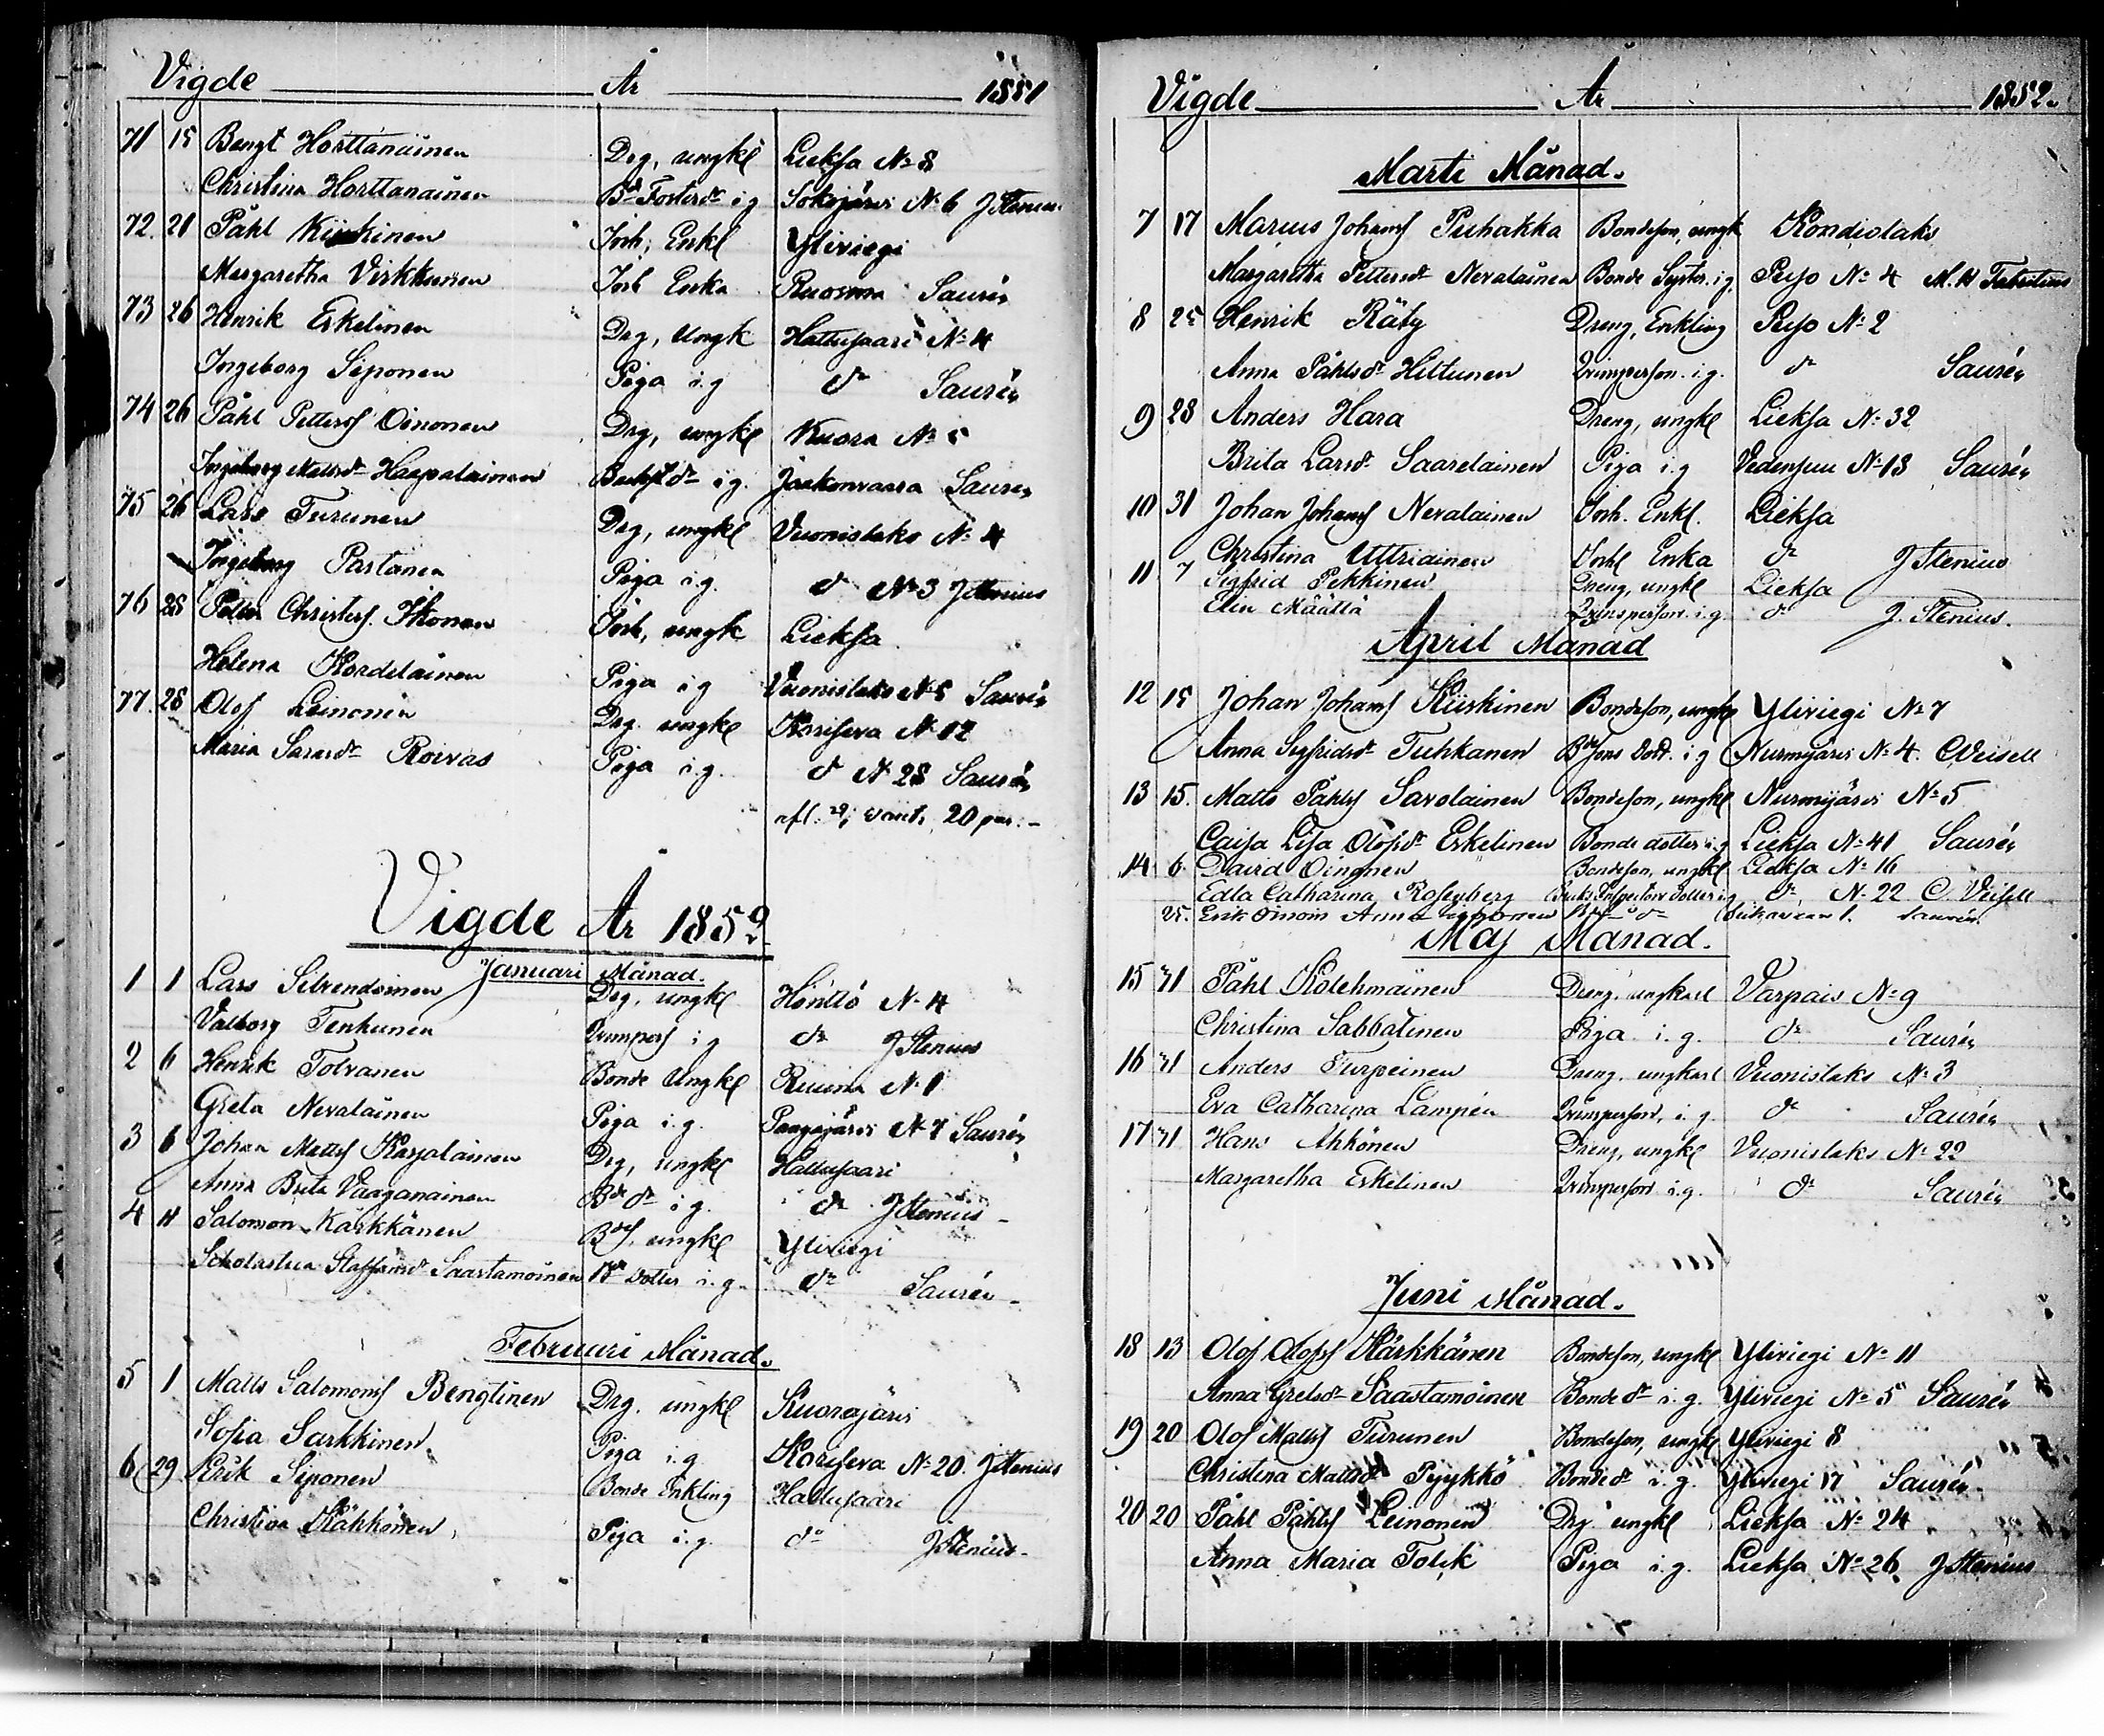 Vigde År 1851
71 15 Bengt Horttanainen Drg, ungkl Lieksa No 8
Christina Horttanainen Bde Fosterdr i.g Sokojärvi No 6 J Stenius
72. 21 Påhl Kiiskinen Inh, Enkl Yliviegi
Margaretha Virkkunen Inh Enka Ruosma Saurén
73 26 Henrik Eskelinen Drg, Ungk Hattusaari No 4
Ingeborg Siponen Piga i.g do Saurén
74 26 Påhl Petterss Oinonen Drg, ungkl Kuora No 5
Ingeborg Mattsdr Haapalainen i.g. Jaakonvaara Saurén
75 26 Lars Turunen Drg, ungkl Vuonislaks No 4
Ingeborg Partanen Piga i.g. do No 3 J Stenius
76 28 Petter Christers. Ikonen Inh, ungk Lieksa
Helena Kordelainen Piga i g Vuonislaks No 5 Saurén
77. 28 Olof Leinonen Drg. ungkl Koriseva No 12
Maria Sarasdr Roivas Piga i.g. do No 28 Saurén
20 par.
Vigde År 1852
Januari Månad.
1 1 Lars Silvendoinen Drg, ungkl Hönttö No 4
Valborg Tenhunen Qvinpers i g do J Stenius
2 6 Henrik Tolvanen Bonde Ungkl Ruuna No 1
Greta Nevalainen Piga i.g. Pangajärvi No 7 Saurén
3 6 Johan Matts Karjalainen Drg, ungkl Hattusaari
Anna Brita Vaaganainen Bde dr i g. do J Stenius
4 11 Salomon Kärkkänen Bdes, ungkl Yliviegi
Scholastica Staffansdr Saastamoinen Bde dotter i.g. do Saurén
Februari Månad.
5 1 Matts Salomons Bengtinen Drg. ungkl Kuorajärvi
Sofia Sarkkinen Piga i.g. Koriseva No 20. J Stenius
6 29 Erik Siponen Bonde Enkling Hattusaari
Christina Kähkönen Piga i.g. do J Stenius
Vigde År 1852.
Marti Månad.
7 17 Marcus Johans Puhakka Bondeson, ungk Kondiolaks
Margaretha Pettersdr Nevalainen Bonde Syster i.g. Puso No 4
8 25 Henrik Räty Dreng, Enkling Puso No 2
Anna Påhlsdr Hiltunen Qvinsperson. i.g. do Saurén
9 28 Anders Hara Dreng, ungkl Lieksa No 32
Brita Larsdr Saarelainen Piga i g Vedensuu No 13 Saurén
10 31 Johan Johans Nevalainen Inh. Enkl. Lieksa
Christina Uttriainen Inh Enka do J Stenius
11 7 Sigfrid Pekkinen Dreng, ungkl Lieksa
Elin Määttä Qvinsperson. i.g. do J. Stenius.
April Månad
12 15 Johan Johans Kiiskinen Bondeson, ungkl Yliviegi No 7
Anna Sigfridsdr Tuhkanen i g Nurmijärvi No 4. C Veisell
13 15. Matts Påhls Savolainen Bondeson, ungkl Nurmijärvi No 5
Caisa Lisa Olofsdr Eskelinen Bonde dotter i.g Lieksa No 41 Saurén
14 6 David Oinonen Bondeson, ungkl Lieksa No 16
Edla Catharina Rosenberg Bruks Inspectors Dotter i g do No 22 C. Veisell
25. Erik Oinoin Anna 1. Saurén
Maj Månad.
15 31 Påhl Kolehmainen Dreng. ungkarl Varpais No 9
Christina Sabbatinen Piga i. g. do Saurén
16 31 Anders Turpeinen Dreng. ungkarl Vuonislaks No 3
Eva Catharina Lampén Qvinsperson, i. g. do Saurén
17 31 Hans Ahkönen Dreng, ungkl Vuonislaks No 22
Margaretha Eskelinen Qvinsperson i.g. do Saurén
Juni Månad.
18 13 Olof Olofs Kärkkänen Bondeson, ungkl Yliviegi No 11
Anna Gretsdr Saastamoinen Bonde dr i. g. Yliviegi No 5 Saurén
19 20 Olof Matts Turunen Bondeson, ungkl Yliviegi 8
Christina Mattsdr Pyykkö Bonde dr i. g. Yliviegi 17 Saurén
20 20 Påhl Påhls Leinonen Drg ungkl Lieksa No 24
Anna Maria Tolik Piga i. g. Lieksa No 26 J Stenius